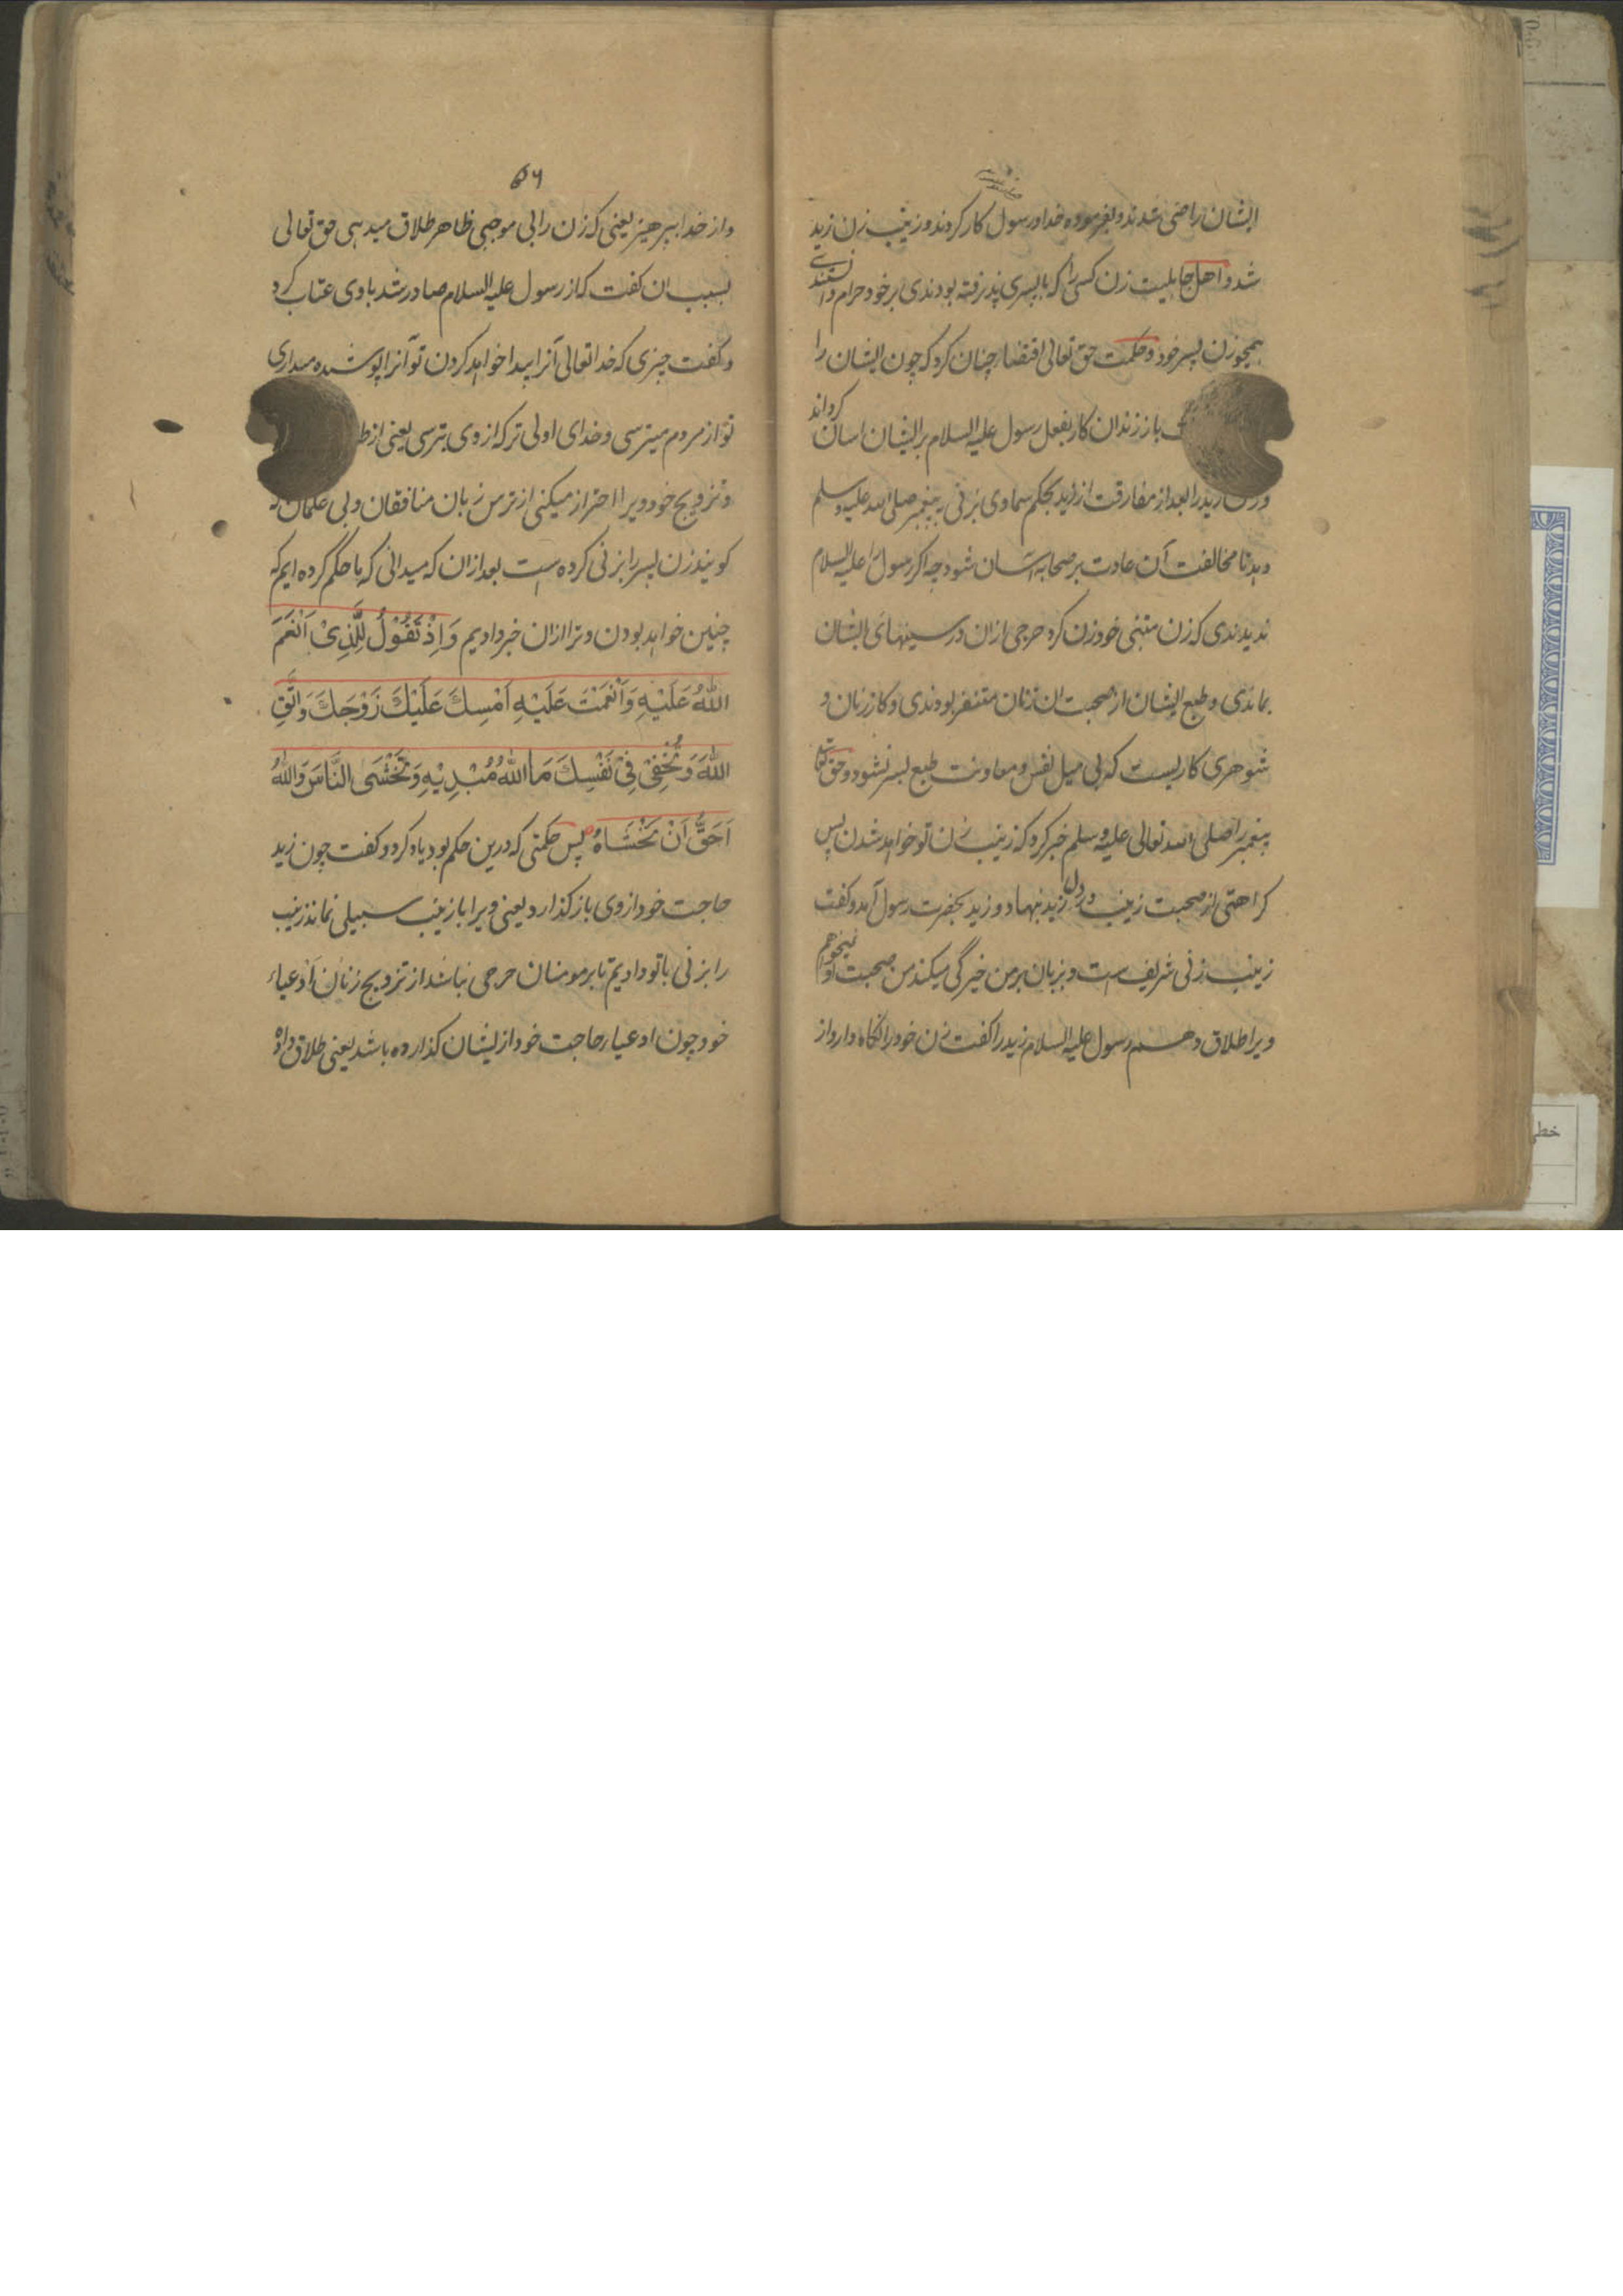 ایشان راضی شدند و بفرموده خدا و رسول کار کردند و زینب زن زید
شد و اهل جاهلیت زن کسی را که با پسری پذیرفته بودندی بر خود حرام دانستندی
همچو زن پسر خود و حکمت حق تعالی اقتضا چنان کرد که چون ایشان را
باز زندان کار بفعل رسول علیه السلام بر ایشان اسان کرداند
و زن زید را بعد از مفارقت از زید بحکم سماوی بزنی به پیغمبر صلی الله علیه وسلم
دهد تا مخالفت آن عادت بر صحابه اسان شود چه اکر رسول را علیه السلام
ندیدندی که زن متبنی خود زن کرد حرجی ازان در سینهای ایشان
بماندی و طبع ایشان از صحبت ان زنان متنفر بودندی و کار زنان و
شوهری کاریست که بی میل نفس و معاونت طبع بسر نشود و حق تعالی
پیغمبر را صلی الله تعالی علیه وسلم خبر کرد که زینب زن تو خواهد شدن پس
کراهتی از صحبت زینب در دل زید بنهاد و زید بحضرت رسول آمد و کفت
زینب زنی شریف است و بزبان بر من خیرگی میکند من صحبت او نمیخواهم
ویرا طلاق دهم رسول علیه السلام زید را کفت زن خود را نکاه دار و از
۵۶
و از خدا بپرهیز یعنی که زن را بی موجبی ظاهر طلاق میدهی حق تعالی
بسبب ان کفت که از رسول علیه السلام صادر شد با وی عتاب کرد
و کفت چیزی که خدا تعالی آنرا پیدا خواهد کردن تو آنرا پوشیده میداری
تو از مردم میترسی و خدای اولی تر که از وی بترسی یعنی از ط
و تزویج خود ویرا احتراز میکنی از ترس زبان منافقان و بی علمان که
کویند زن پسر را بزنی کرده است بعد ازان که میدانی که ما حکم کرده ایم که
چنین خواهد بودن و ترا ازان خبر دادیم وَاِذْ تَقُوْلُ لِلَّذِیْ اَنْعَمَ
اللهُ عَلَیْهِ وَاَنْعَمْتَ عَلَیْهِ اَمْسِكَ عَلَیْكَ زَوْجَكَ وَاتَّقِ
اللهَ وَتُخْفِیْ فِیْ نَفْسِكَ مَا اللهُ مُبْدِیْهِ وَتَخْشَی النَّاسَ وَاللهُ
اَحَقُّ اَنْ تَخْشَاهُ پس حکمتی که درین حکم بود یاد کرد و کفت چون زید
حاجت خود از وی باز کذارد یعنی ویرا با زینب سبیلی نماند زینب
را بزنی با تو دادیم تا بر مومنان حرجی نباشد از تزویج زنان ادعیاء
خود چون ادعیاء حاجت خود از یشان کذارده باشد یعنی طلاق داده
خطی